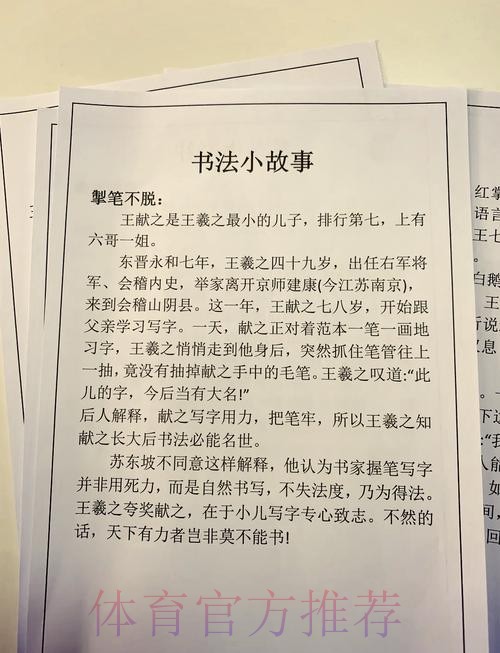 书法小故事
掣笔不脱：
王献之是王羲之最小的儿子，排行第七，上有
六哥一姐。
东晋永和七年，王羲之四十九岁，出任右军将
军、会稽内史，举家离开京师建康(今江苏南京)，
来到会稽山阴县。这一年，王献之七八岁，开始跟
父亲学习写字。一天，献之正对着范本一笔一画地
习字，王羲之悄悄走到他身后，突然抓住笔管往上
一抽，竟没有抽掉献之手中的毛笔。王羲之叹道:“此
儿的字，今后当有大名!”
后人解释，献之写字用力，把笔牢，所以王羲之知
献之长大后书法必能名世。
苏东坡不同意这样解释，他认为书家握笔写字
并非用死力，而是自然书写，不失法度，乃为得法。
王羲之夸奖献之，在于小儿写字专心致志。不然的
话，天下有力者岂非莫不能书!
体育官方推荐
红掌
语言
王七
。
白鹅
王
斤说
息
。一
下这
:“我
人能
。如
间，
回